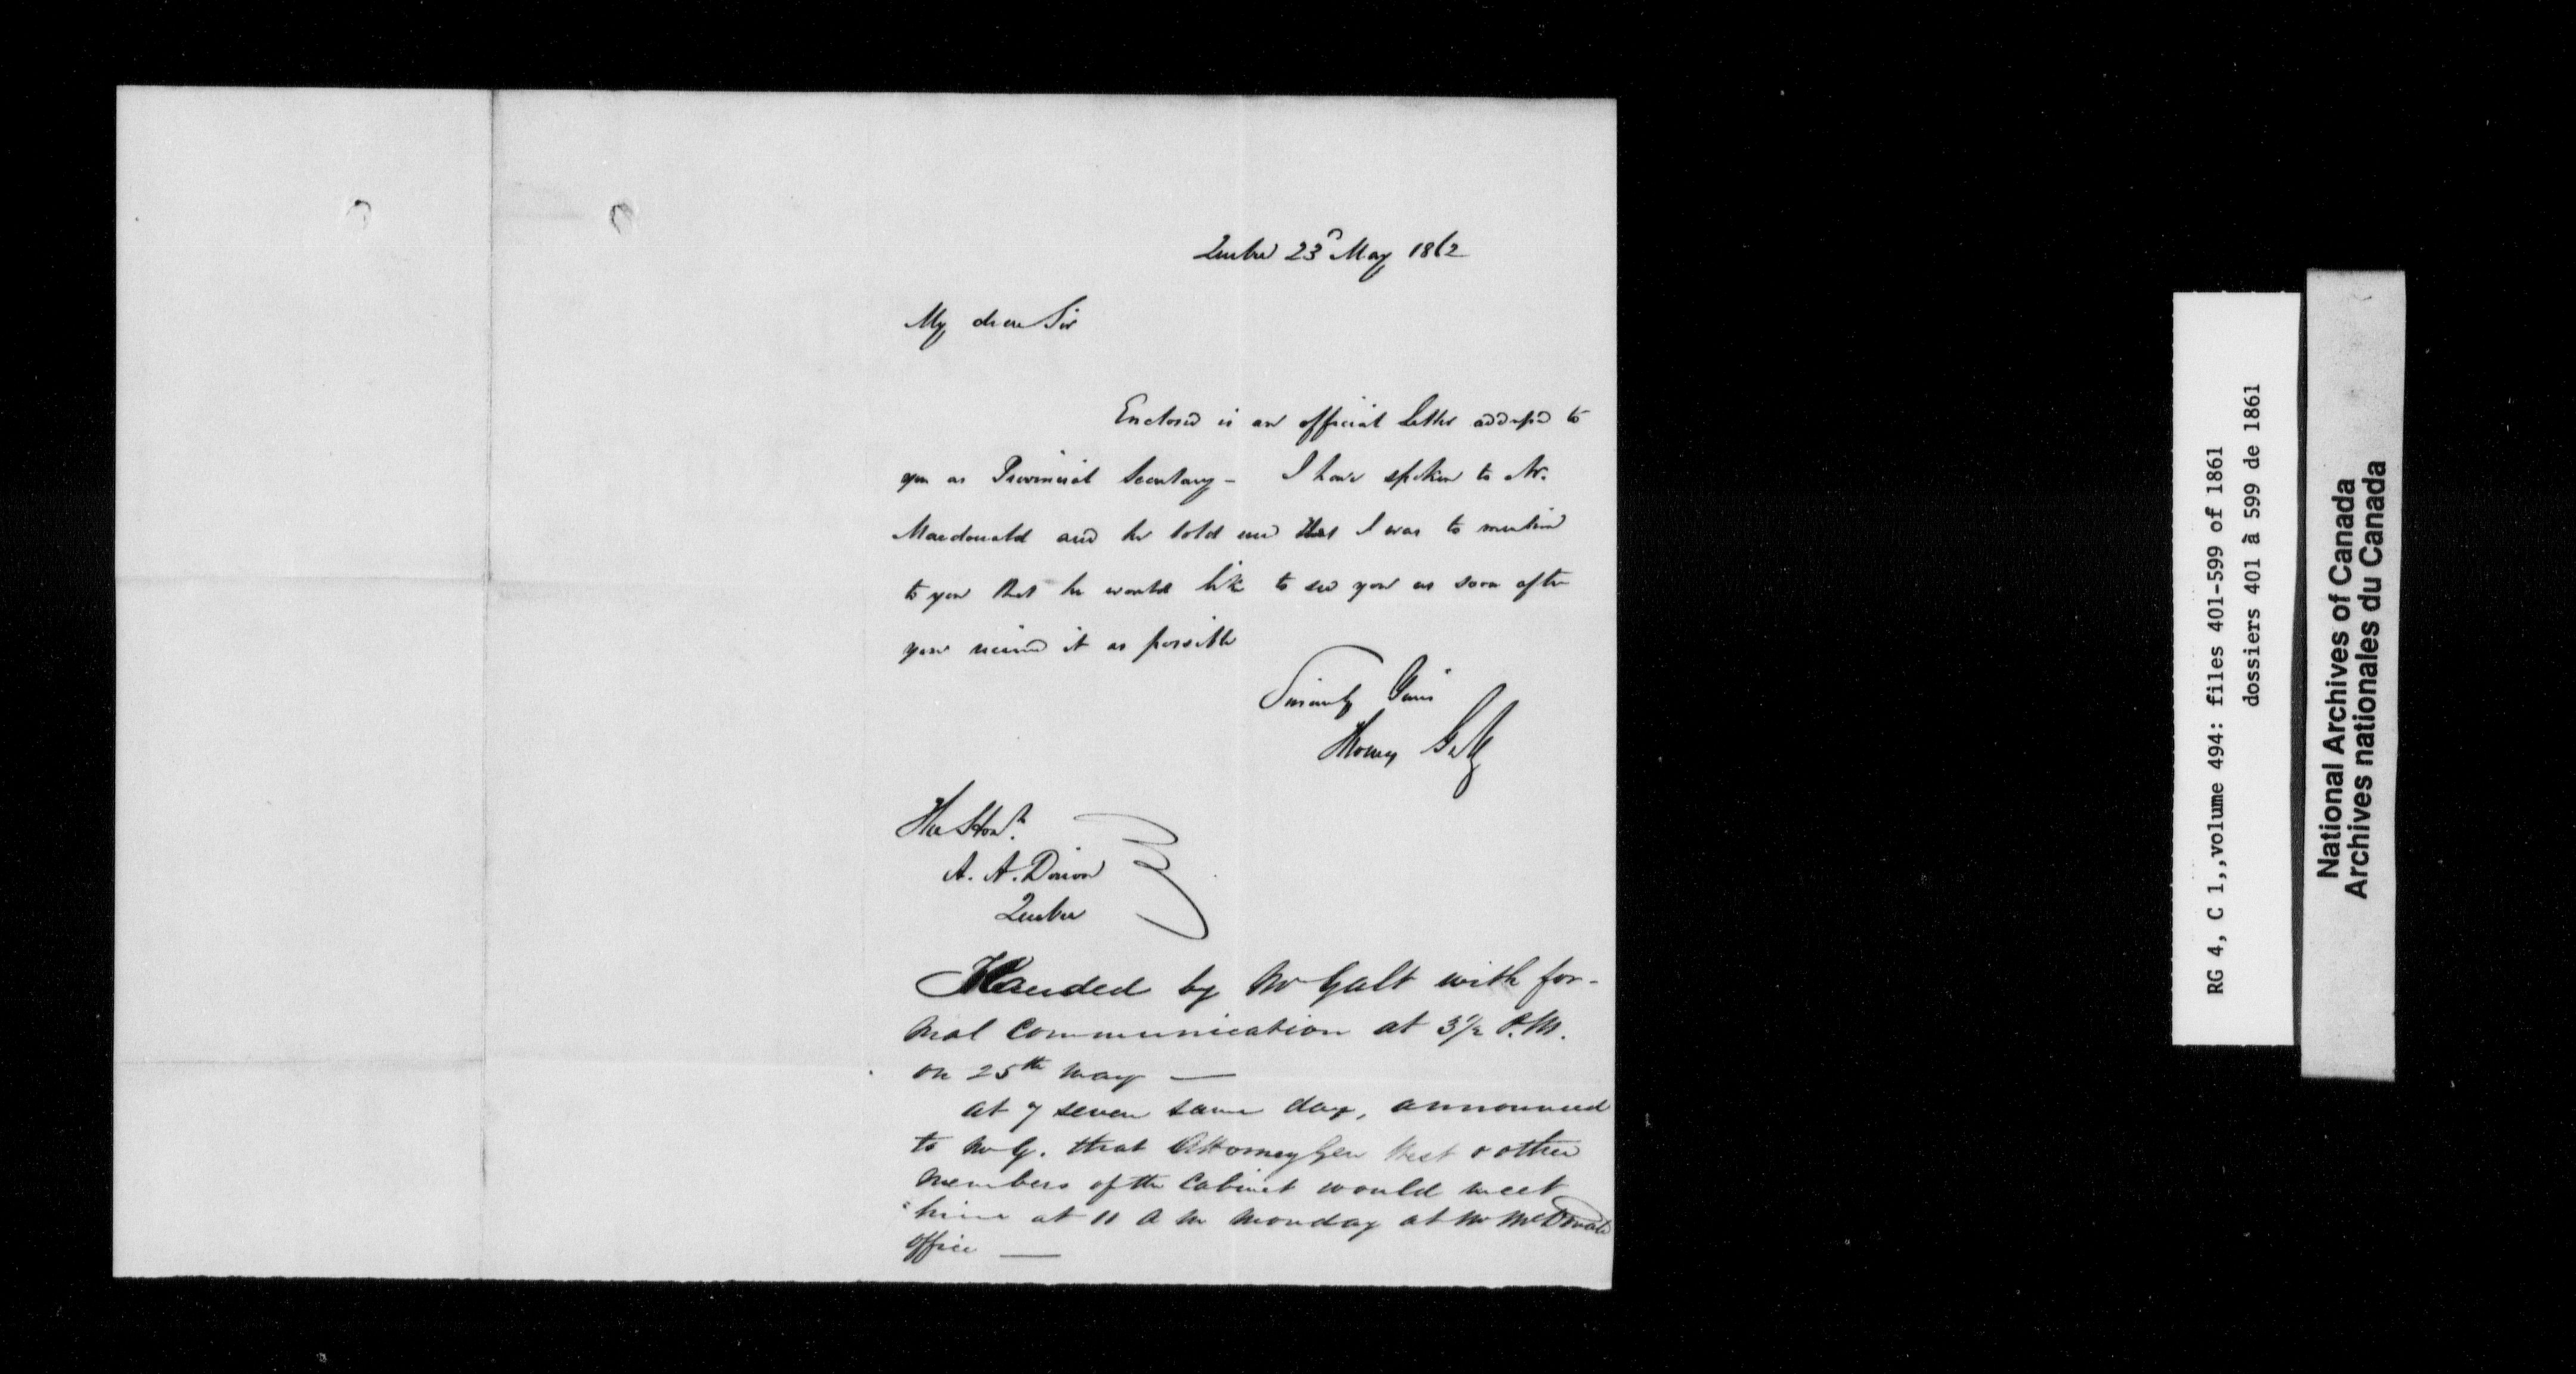 Quebec 23d May 1862
My dear Sir
Enclosed is an official letter addressed to
you as Provincial Secretary - I have spoken to Mr.
Macdonald and he told me that I was to mention
to you that he would like to see you as soon after
you received it as possible
Sincerely Yours
Thomas Galt
The Honb.
A. A. Dorion
Quebec
Handed by Mr Galt with for-
mal communication at 3 1/2 P.M.
on 25th May —
at 7 seven same day, announced
to Mr G. that Attorney Gen West & other
members of the Cabinet would meet
him at 11 A M Monday at Mr McDonald
office —
RG 4, C 1,,volume 494: files 401-599 of 1861
dossiers 401 à 599 de 1861
National Archives of Canada
Archives nationales du Canada